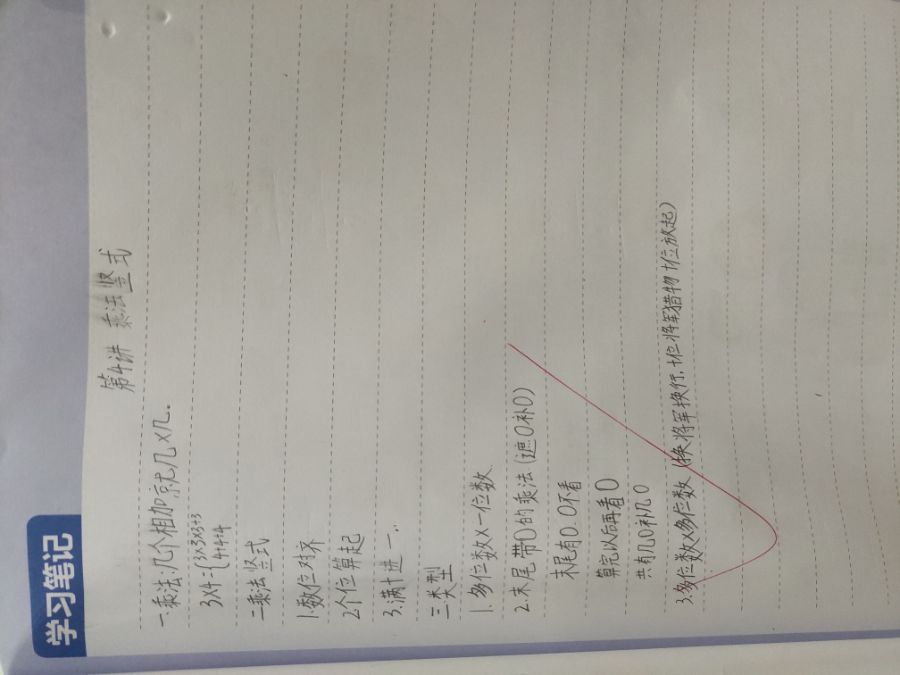 学习笔记
第4讲 乘法竖式
一.乘法:几个相加就几×几.
3×4={3×3×3+3
4+4+4
二.乘法竖式
1.数位对齐
2.个位算起
3.满十进一..
三.类型
1.多位数×一位数
2.末尾带0的乘法(遮0补0)
末尾有0.0不看
算完以后再看0
共有几0补几0
3.多位数×多位数 (换将军换行,十位将军猎物十位放起)